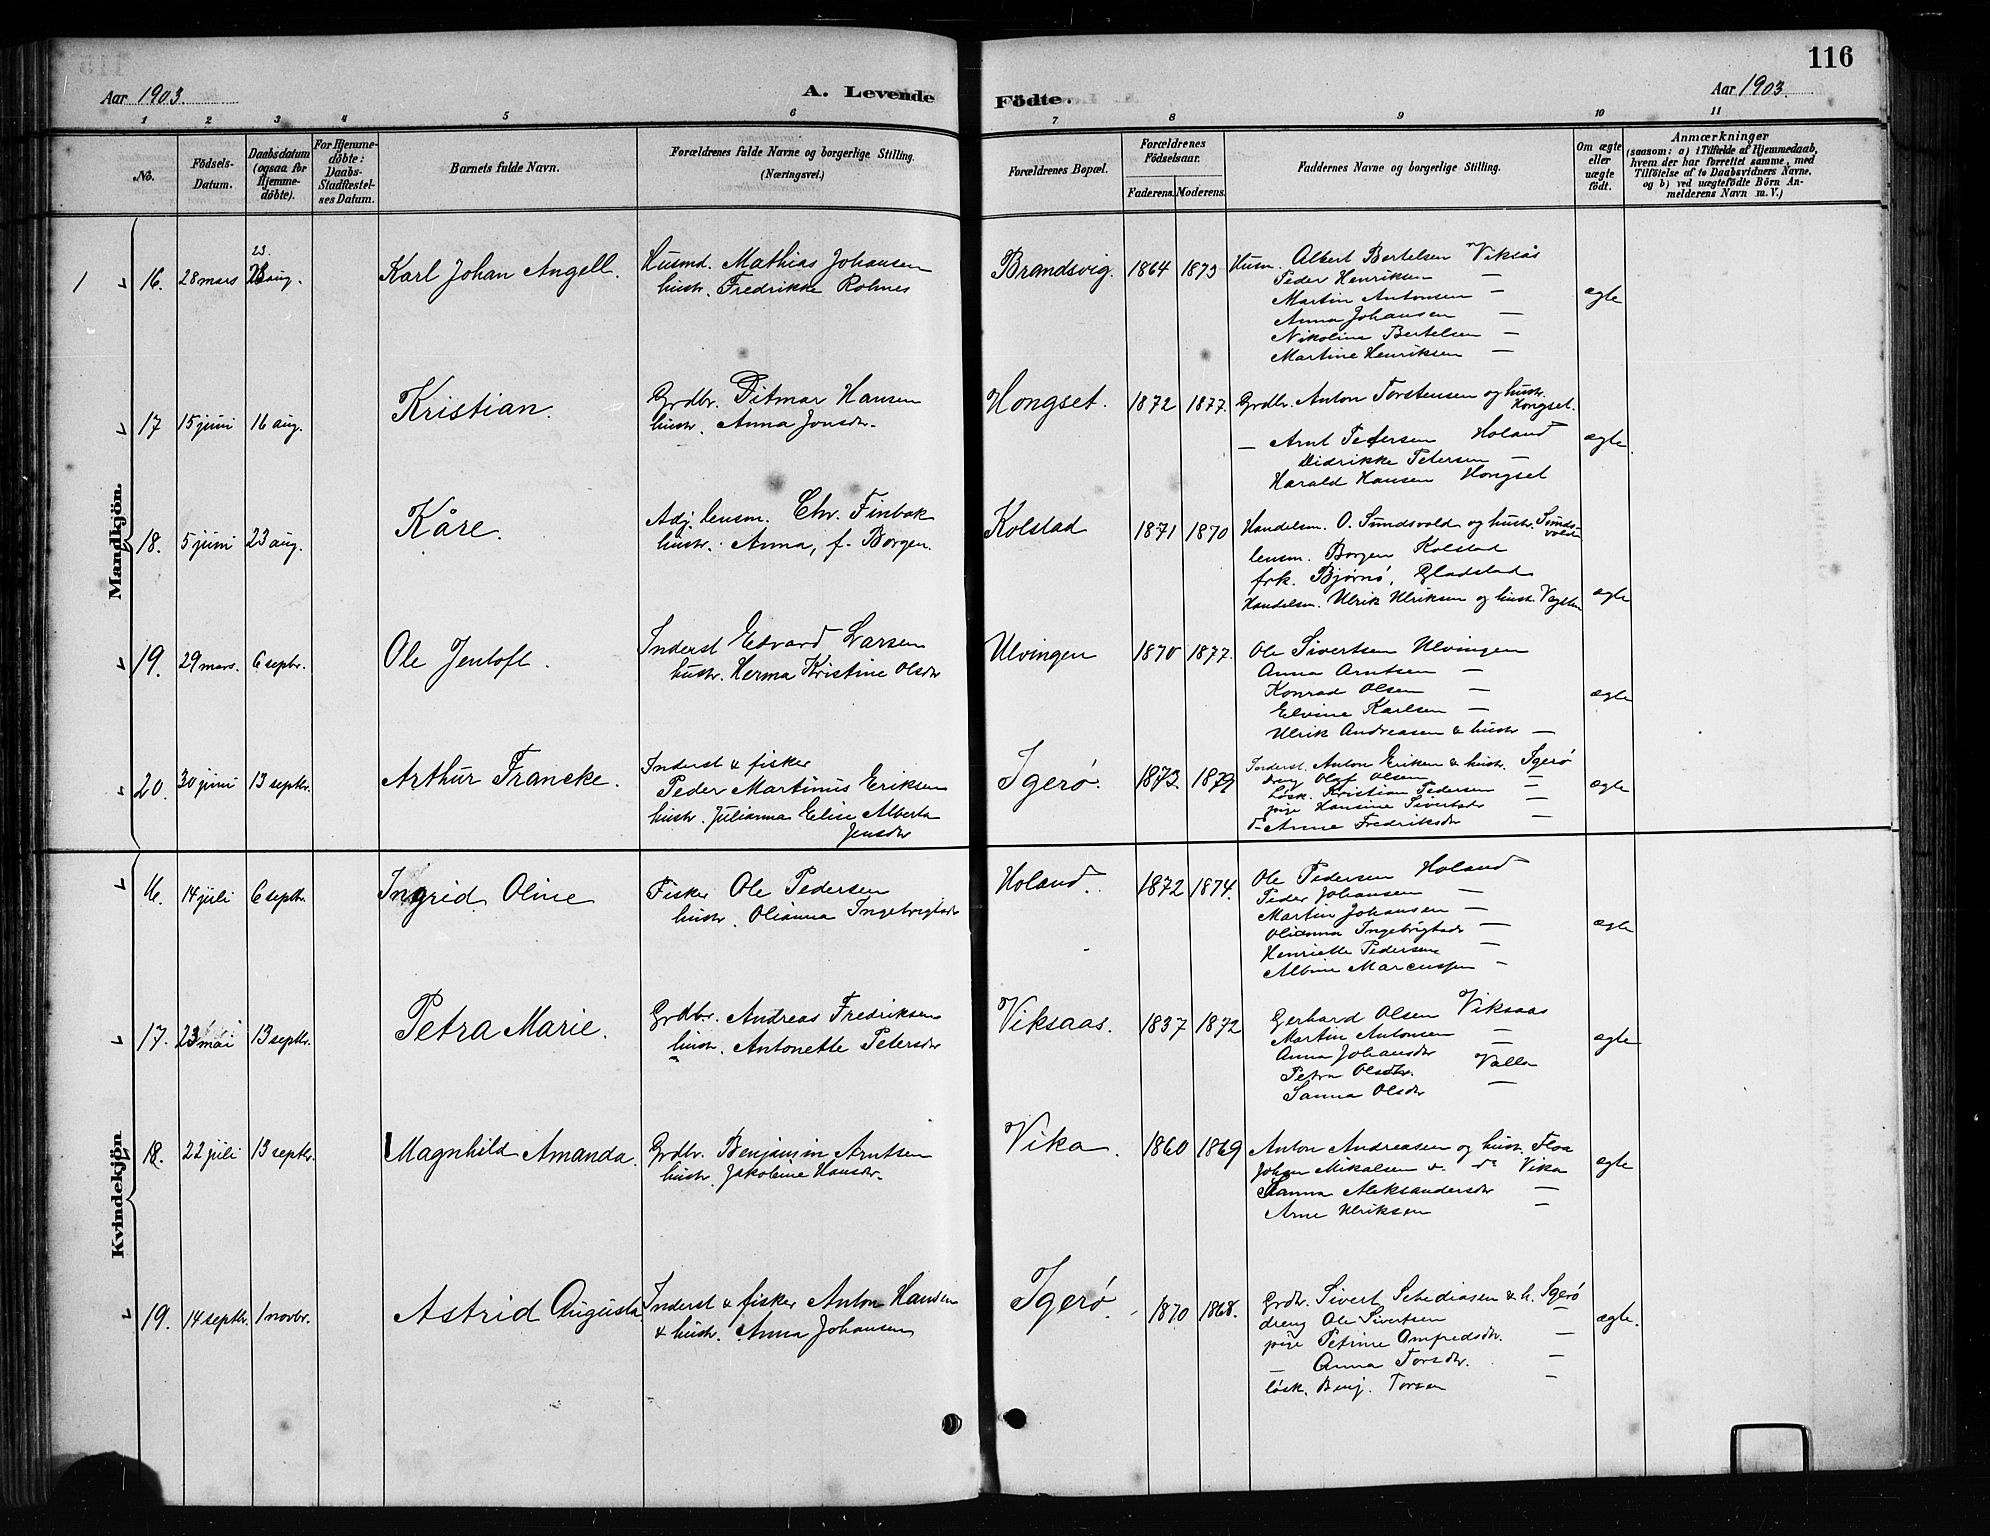 116
Aar 1903.
A. Levende
Födte.
Aar 1903.
1 2 3 4 5 6 7 8 9 10 11
No.
Födsels-Datum.
Daabsdatum (ogsaa for Hjemme-döbte).
For Hjemme-döbte: Daabs-Stadfæstel-ses Datum.
Barnets fulde Navn.
Forældrenes fulde Navne og borgerlige Stilling.
(Næringsvei.)
Forældrenes Bopæl.
Forældrenes Födselsaar.
Faderens. Moderens.
Faddernes Navne og borgerlige Stilling.
Om ægte eller uægte födt.
Anmærkninger
(saasom: a) i Tilfælde af Hjemmedaab,
hvem der har forrettet samme, med
Tilföielse af to Daabsvidners Navne,
og b) ved uægtefödte Börn An-
melderens Navn m. V.)
Mandkjön.
1 16. 28 mars 23. aug. Karl Johan Angell. Husmd. Mathias Johansen
hustr. Fredrikke Rohnes
Brandsvig. 1864 1873 Husm. Albert Bertelsen Viksås
Peder Henriksen —
Martin Antonsen — ægte
Anna Johansen —
Nikolina Bertelsen —
Martine Henriksen —
17 15 juni 16 aug. Kristian. Grdbr. Ditmar Hansen
hustr. Anna Jonsdtr.
Hongset. 1872 1877. Grdbr. Anton Torstensen og hustr.
Hongset.
— Arnt Petersen Holand ægte
Didrikke Petersen —
Harald Hansen Hongset
18. 5 juni 23 aug. Kåre. Adj. lensm. Chr. Finbak
hustr. Anna, f. Borgen.
Kolstad 1871 1870 Handelsm. O. Sundsvold og hustr. Sunds-
vold
lensm. Borgen Kolstad
frk. Bjørnø, Gladstad
Handelsm. Ulrik Ulriksen og hustr. ægte
19. 29 mars. 6 septbr. Ole Jentoft. Inderst Edvard Larsen
hustr. Herma Kristine Olsdtr
Ulvingen 1870 1877. Ole Sivertsen Ulvingen
Anna Arntsen —
Konrad Olsen — ægte
Elvine Karlsen —
Ulrik Andreasen & hustr —
20. 30 juni 13 septbr. Arthur Francke. Inderst & fisker
Peder Martinus Eriksen
hustr. Julianna Elise Alberta
Jensdtr
Igerø. 1873 1879 Inderst. Anton Eriksen & hustr. Igerø
dreng Olaf Olsen —
løsk. Kristian Pedersen — ægte
pige Hansine Sivertsdtr —
do Anne Fredriksdtr —
Kvindekjön
16. 14 juli 6 septbr. Ingrid Oline Fisker Ole Pedersen
hustr. Olianna Ingebrigtsdtr
Holand. 1872 1874. Ole Pedersen Holand
Peder Johansen —
Martin Johansen —
Olianna Ingebrigtsdtr — ægte
Henriette Pedersen —
Albine Marcussen —
17. 23 mai 13 septbr. Petra Marie. Grdbr. Andreas Fredriksen
hustr. Antonette Petersdtr
Viksaas. 1837 1872 Gerhard Olsen Viksaas
Martin Antonsen —
Anna Johansdtr ægte
Petra Olsdtr. Valla
Sanna Olsdtr —
18. 22 juli 13 septbr. Magnhild Amanda. Grdbr. Benjamin Arntsen
hustr. Jakobine Hansdtr.
Vika. 1860 1869 Anton Andreasen og hustr. Floa
Johan Mikalsen do. do Vika ægte
Hanna Aleksandersdtr —
Arne Ulriksen —
19. 14 septbr. 1 novbr. Astrid Augusta Inderst & fisker Anton Hansen
& hustr. Anna Johansen
Igerø 1870 1868. Grdbr. Sivert & h. Igerø
dreng Ole Sivertsen — ægte.
pige Petrine Amfredsdtr. —
— Anna Torsdtr. —
løsk. Benj. Torsen —